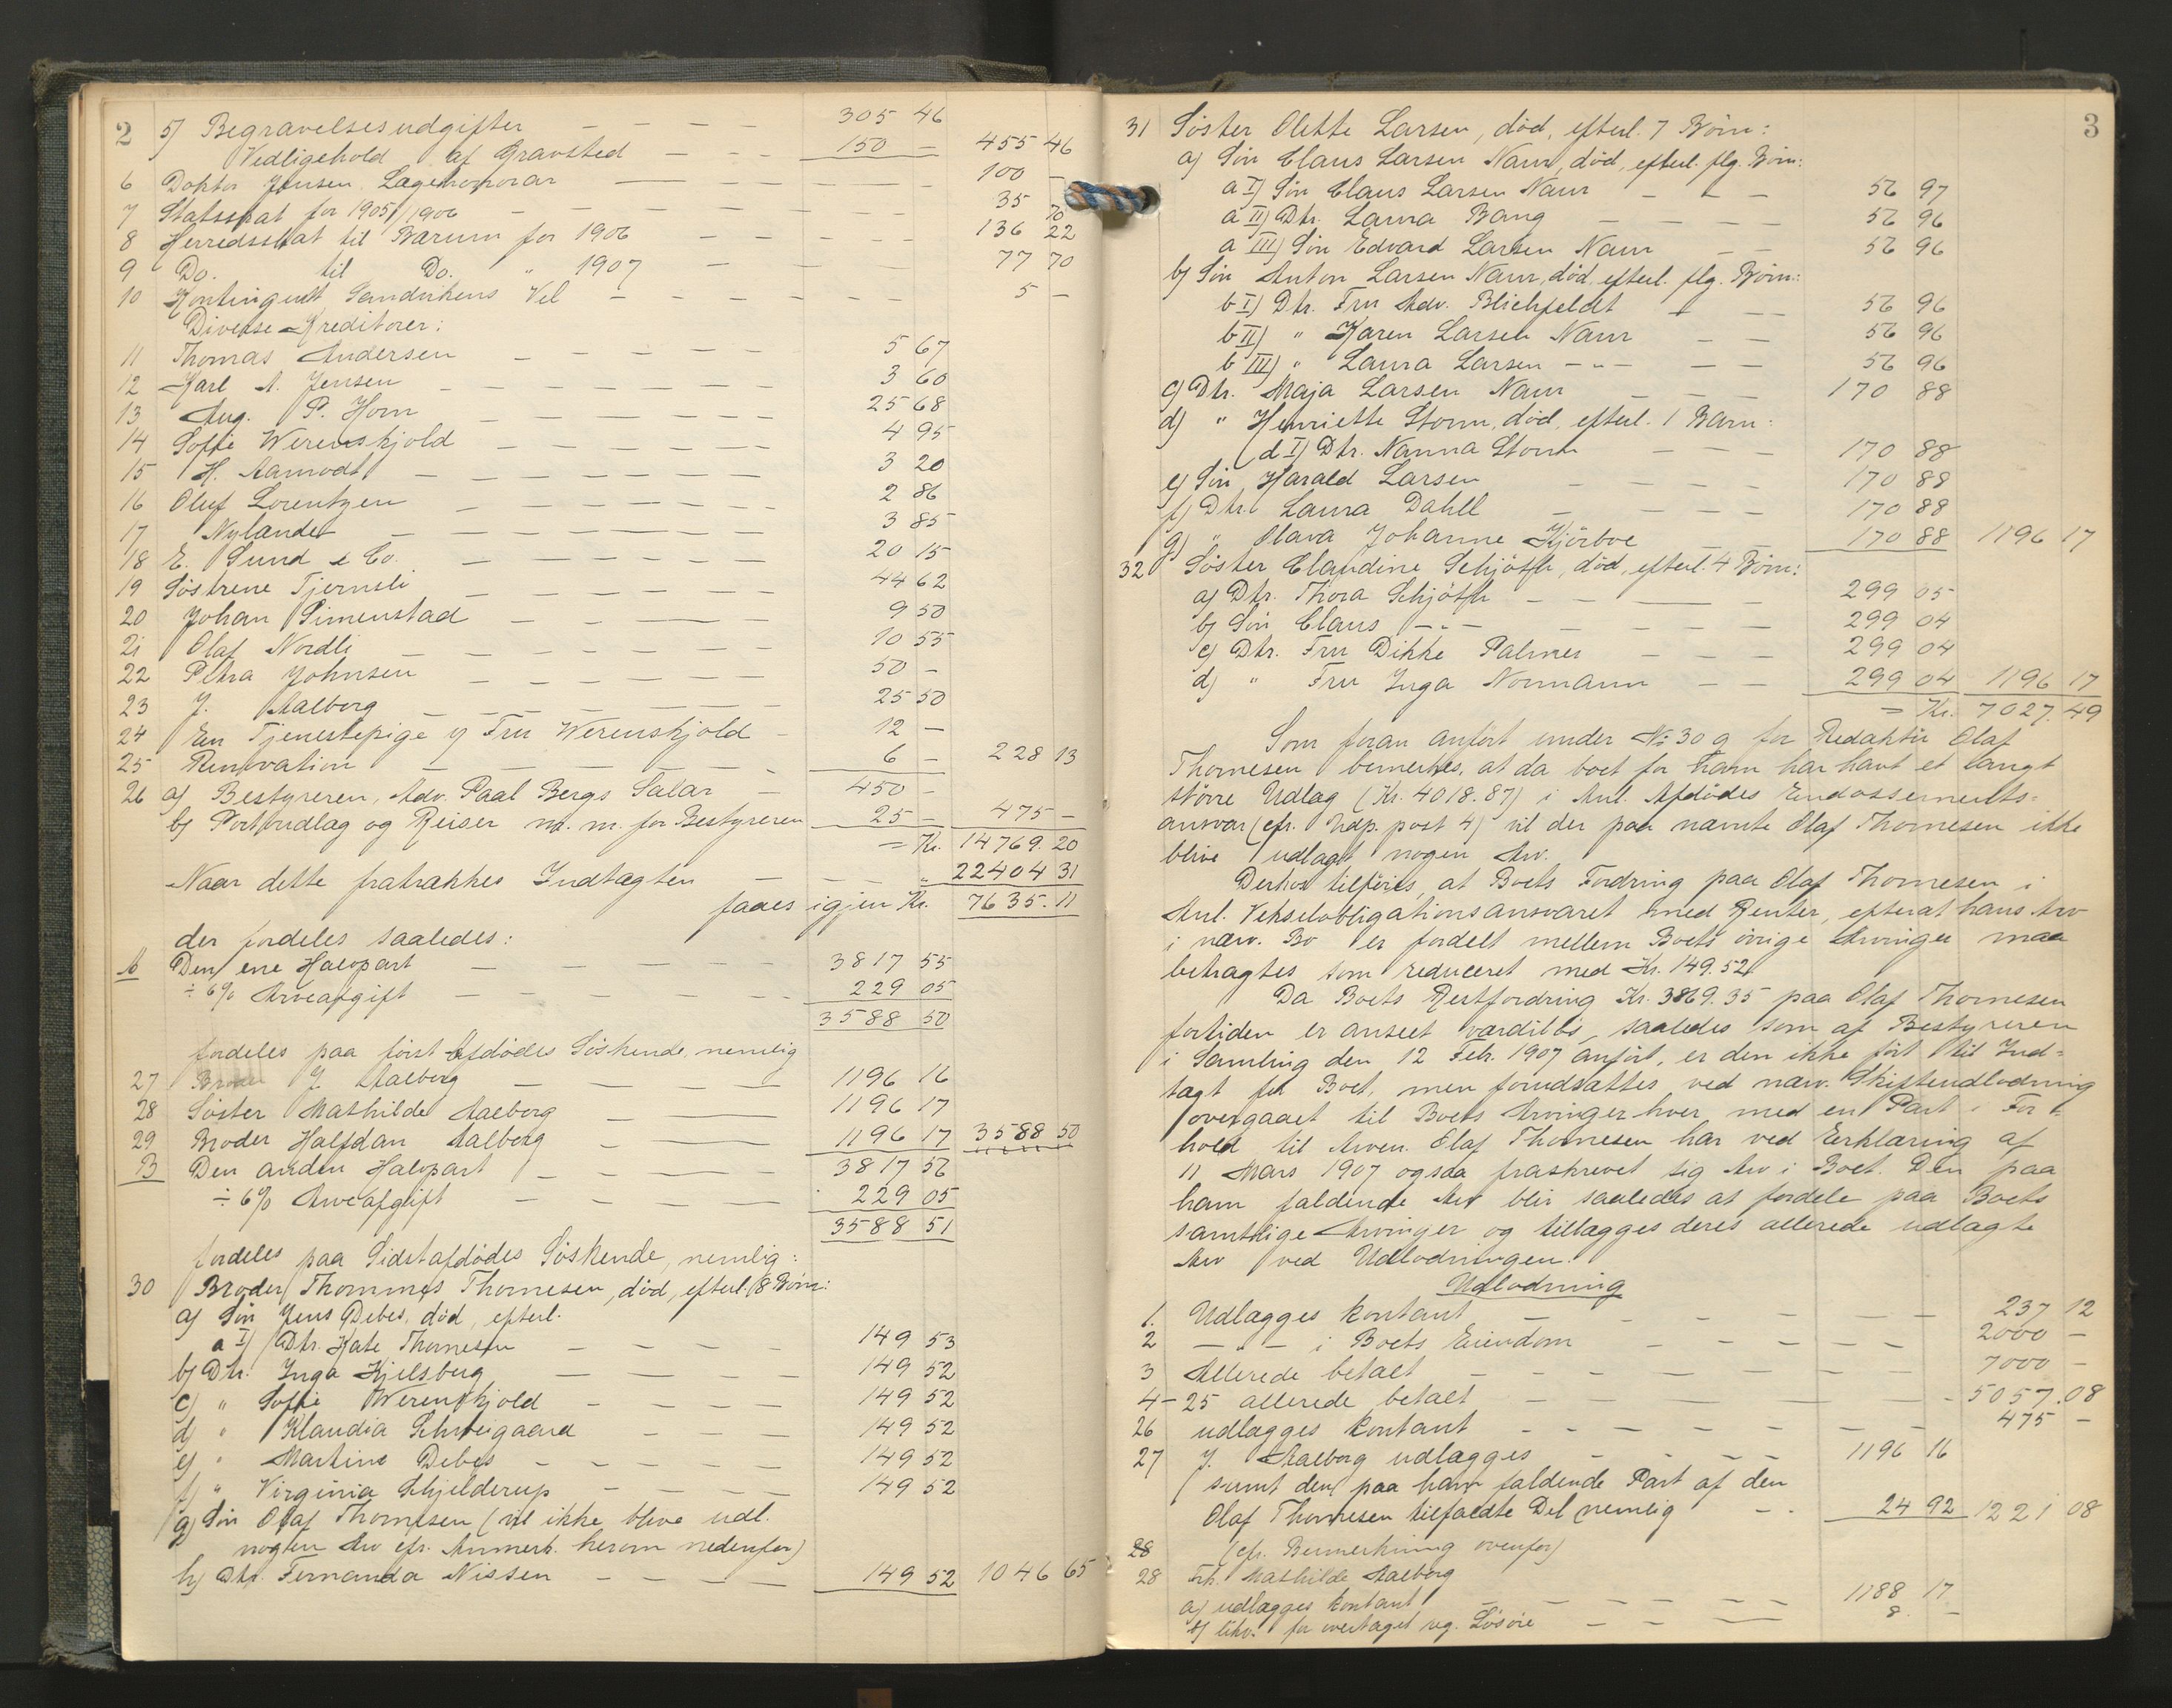 2
5) Begravelsesudgifter — — — — 305 46
Vedligehold af Gravsted — — — 150 — 455 46
6 Doktor Jensen Lægehonorar — — — — 100 —
7 Statsskat for 1905/1906 — — — — 35 70
8 Herredsskat til Bærum for 1906 — — — — 136 22
9 Do. til Do. " 1907 — — — 77 70
10 Kontingent Sandvikens Vel — — — — 5 —
Diverse Kreditorer:
11 Thomas Andersen — — — — 5 67
12 Karl A. Jensen — — — — 3 60
13 Aug. P. Horn — — — — 25 68
14 Soffie Werenskjold — — — — 4 95
15 H. Aamodt — — — — 3 20
16 Oluf Lorentzen — — — — 2 86
17 Nylander — — — — 3 85
18 E. Sund & Co. — — — — 20 15
19 Søstrene Tjernsli — — — — 44 62
20 Johan Simenstad — — — — 9 50
21 Olaf Nordli — — — — 10 55
22 Petra Johnsen — — — — 50 —
23 J. Aalborg — — — — 25 50
24 En Tjenestepige og Fru Werenskjold — 12 —
25 Renovation — — — — 6 — 228 13
26 a) Bestyreren, Adv. Paal Bergs Salær — 450 —
b) Portoudlæg og Reiser m. m. for Bestyreren 25 — 475 —
= Kr. 14769.20
Naar dette fratrækkes Indtægten — — — " 22404 31
faaes igjen Kr. 7635.11
der fordeles saaledes:
A Den ene Halvpart — — — — 3817 55
÷ 6% Arveafgift — — — — 229 05
3588 50
fordeles paa først Afdødes Søskende, nemlig
27 Broder J. Aalborg — — — 1196 16
28 Søster Mathilde Aalborg — — 1196 17
29 Broder Halfdan Aalborg — — 1196 17 3588 50
B Den anden Halvpart — — — 3817 56
÷ 6% Arveafgift — — — 229 05
3588 51
fordeles paa Sidstafdødes Søskende, nemlig:
30 Broder Thommes Thomesen, død, efterl. 8 Børn:
a) Søn Jens Debes, død, efterl.
a I) Dtr. Kate Thomesen — — — 149 53
b) Dtr. Inga Kjelsberg — — — 149 52
c) " Soffie Werenskjold — — — 149 52
d) " Klaudia Schweigaard — — — 149 52
e) " Martine Debes — — — — 149 52
f) " Virginia Schjelderup — — — 149 52
g) Søn Olaf Thomesen (vil ikke blive udl.
nogen Arv cfr. Anmerk. herom nedenfor)
h) Dtr. Fernanda Nissen — — — — 149 52 1046 65
3
31 Søster Olette Larsen, død, efterl. 7 Børn:
a) Søn Claus Larsen Naur, død, efterl. flg. Børn:
a I) Søn Claus Larsen Naur — — — 56 97
a II) Dtr. Laura Bang — — — — 56 96
a III) Søn Edvard Larsen Naur — — 56 96
b) Søn Anton Larsen Naur, død, efterl. flg. Børn:
b I) Dtr. Fru Adv. Blichfeldt — — — 56 96
b II) " Karen Larsen Naur — — 56 96
b III) " Laura Larsen — " — — 56 96
c) Dtr. Maja Larsen Naur — — — 170 88
d) " Henriette Storm, død, efterl. 1 Barn:
(d I) Dtr. Nanna Storm — — — 170 88
e) Søn Harald Larsen — — — — 170 88
f) Dtr. Laura Dahll — — — — 170 88
g) " Olava Johanne Kjørboe — — 170 88 1196 17
32 Søster Claudine Schjøth, død, efterl. 4 Børn:
a) Dtr. Thora Schjøth — — — 299 05
b) Søn Claus — " — — — — 299 04
c) Dtr. Fru Dikke Palmer — — — 299 04
d) " Fru Inga Normann — — 299 04 1196 17
= Kr. 7027.49
Som foran anført under No 30 g for Redaktør Olaf
Thomesen bemerkes, at da boet for ham har havt et langt
større Udlæg (Kr. 4018.87) i Anl. Afdødes Endossements-
ansvar (cfr. Udg. post 4) vil der paa nævnte Olaf Thomesen ikke
blive udlagt nogen Arv.
Derhos tilføies, at Boets Fordring paa Olaf Thomesen i
Anl. Vekselobligationsansvaret med Renter, efterat hans Arv
i nærv. Bo er fordelt mellem Boets øvrige Arvinger maa
betragtes som reduceret med Kr. 149.52
Da Boets Restfordring Kr. 3869.35 paa Olaf Thomesen
fortiden er anseet værdiløs, saaledes som af Bestyreren
i Samling den 12 Febr. 1907 anført, er den ikke ført til Ind-
tægt for Boet, men forudsættes ved nærv. Skifteudlodning
overgaaet til Boets Arvinger hver med en Part i For-
hold til Arven. Olaf Thomesen har ved Erklæring af
11 Mars 1907 ogsaa fraskrevet sig Arv i Boet. Den paa
ham faldende Arv blir saaledes at fordele paa Boets
samtlige Arvinger og tillægges deres allerede udlagte
Arv ved Udlodningen.
Udlodning
1. Udlægges kontant — — — — — 237 12
2 — " — i Boets Eiendom — — — — 2000 —
3 Allerede betalt — — — — — 7000 —
4-25 allerede betalt — — — — — 5057.08
26 udlægges kontant — — — — — 475 —
27 J. Aalborg udlægges — — — 1196 16
samt den paa ham faldende Part af den
Olaf Thomesen tilfaldte Del nemlig — 24 92 1221 08
28 (cfr. Bemerkning ovenfor)
28 Frk. Mathilde Aalborg
a) udlægges kontant — — — — 1188 17
b) likv. for overtaget Løsøre — — — 8 —